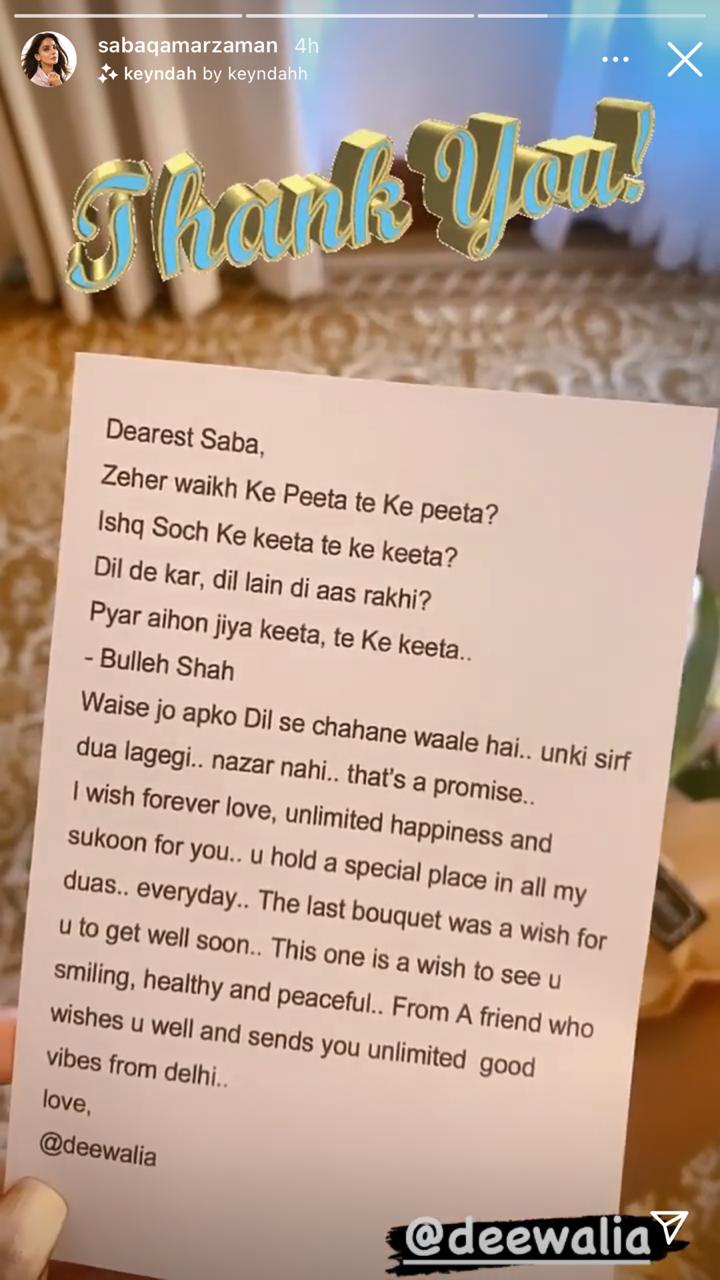 sabaqamarzaman 4h
keyndah by keyndahh
Thank You!
Dearest Saba,
Zeher waikh Ke Peeta te Ke peeta?
Ishq Soch Ke keeta te ke keeta?
Dil de kar, dil lain di aas rakhi?
Pyar aihon jiya keeta, te Ke keeta..
- Bulleh Shah
Waise jo apko Dil se chahane waale hai.. unki sirf
dua lagegi.. nazar nahi.. that's a promise..
I wish forever love, unlimited happiness and
sukoon for you.. u hold a special place in all my
duas.. everyday.. The last bouquet was a wish for
u to get well soon.. This one is a wish to see u
smiling, healthy and peaceful.. From A friend who
wishes u well and sends you unlimited good
vibes from delhi..
love,
@deewalia
@deewalia